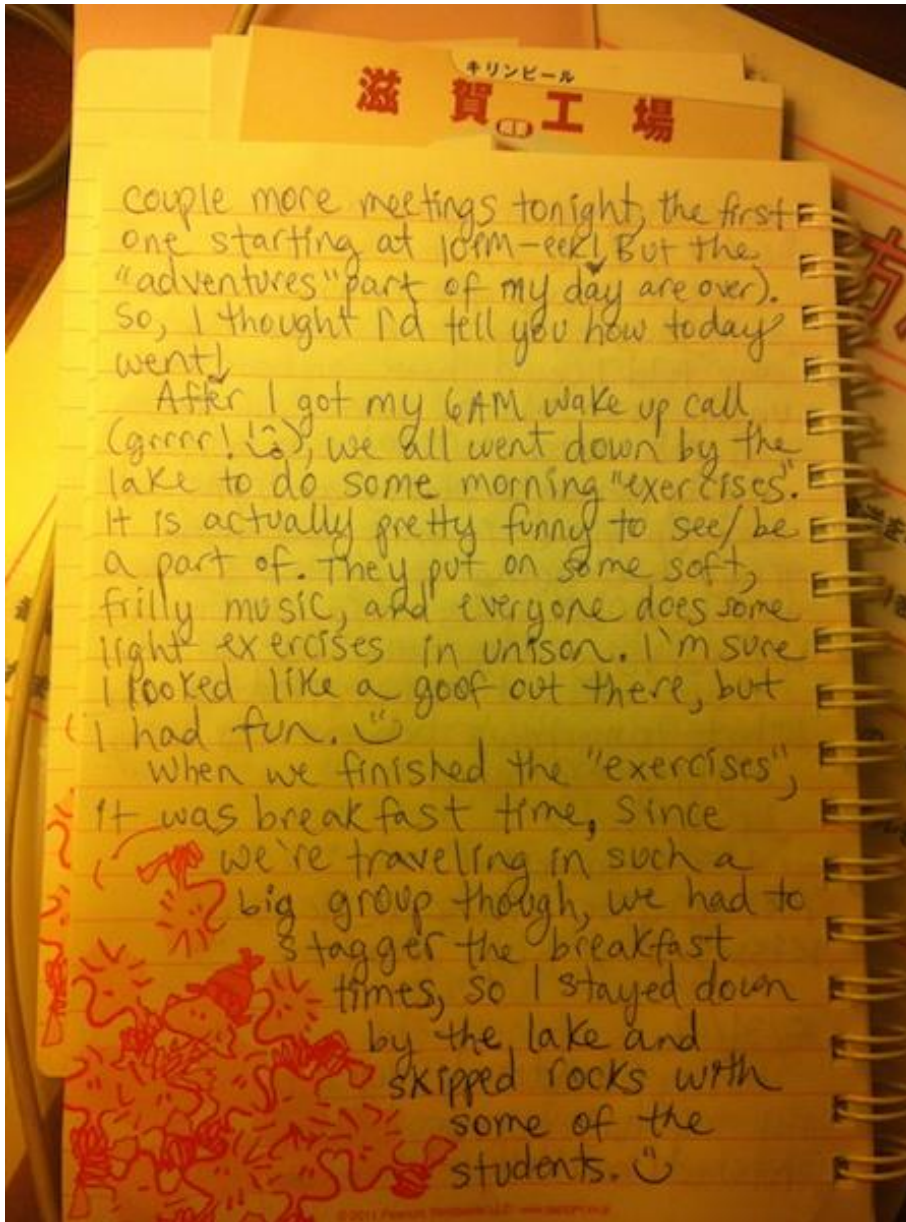 キリンビール
滋賀工場
couple more meetings tonight, the first
one starting at 10PM-eek! But the
"adventures" part of my day are over).
So, I thought I'd tell you how today
went!
After I got my 6AM wake up call
(grrrr! ), we all went down by the
lake to do some morning "exercises".
It is actually pretty funny to see/be
a part of. They put on some soft,
frilly music, and everyone does some
light exercises in unison. I'm sure
I looked like a goof out there, but
I had fun.
When we finished the "exercises",
it was breakfast time, since
we're traveling in such a
big group though, we had to
stagger the breakfast
times, so I stayed down
by the lake and
skipped rocks with
some of the
students.